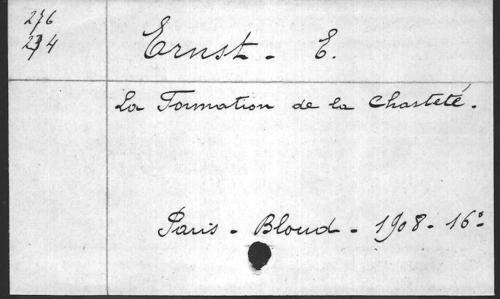 276
274
Ernst - E.
La Formation de la Chasteté.
Paris - Bloud - 1908 - 16°